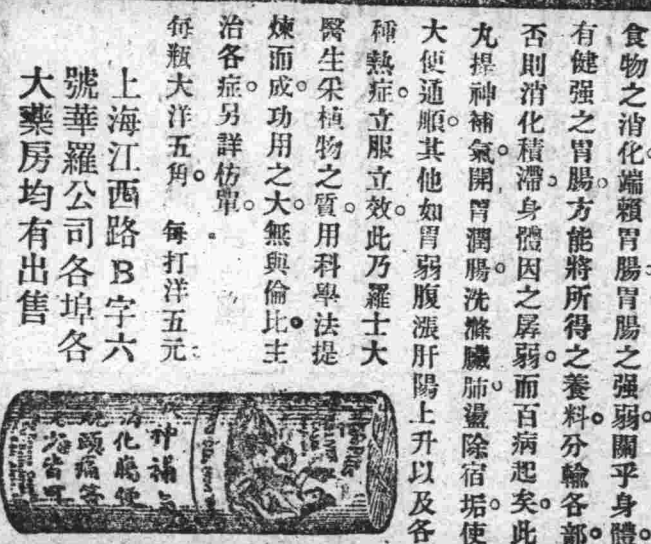 食物之消化。端賴胃腸。胃腸之强弱。關乎身體。
有健强之胃腸。方能將所得之養料。分輸各部。
否則消化積滯。身體因之孱弱。而百病起矣。此
丸提神補氣。開胃潤腸。洗滌臟肺。盪除宿垢。使
大便通順。其他如胃弱腹漲肝陽上升以及各
種熱症。立服立效。此乃羅士大
醫生采植物之質。用科學法提
煉而成。功用之大。無與倫比。主
治各症。另詳仿單。
每瓶大洋五角。 每打洋五元。
上海江西路B字六
號華羅公司各埠各
大藥房均有出售
神補氣
消化腸便
頭痛